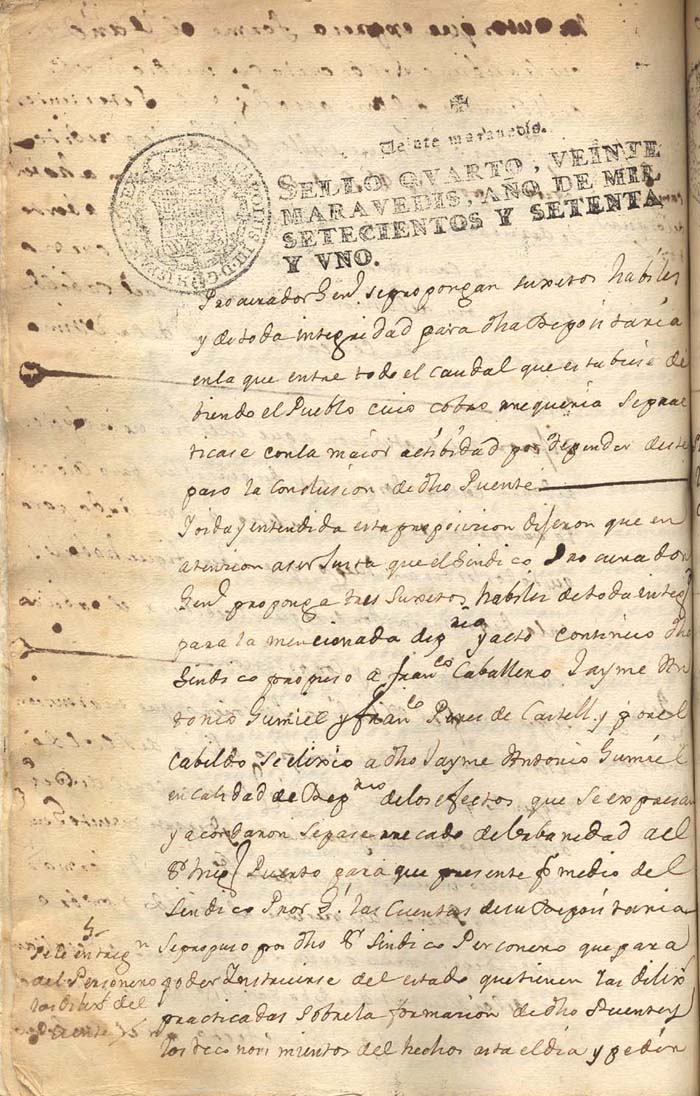 Veinte maravedis.
SELLO QVARTO, VEINTE
MARAVEDIS, AÑO DE MIL
SETECIENTOS Y SETENTA
Y VNO.
Procurador Genl. se propongan suxetos habiles
y de toda integridad para dha Depositaría
en la que entre todo el caudal que estubiese de
biendo el Pueblo cuio cobro requeria se prac
ticase con la maior actibidad por depender de este
paso la Conclusion de dho Puente
Y oida y entendida esta proposicion dixeron que en
atencion a ser Justa que el Sindico Procurador
Genl. proponga tres Suxetos habiles de toda integd.
para la mencionada depria y acto continuo dho
Sindico propuso a Franco Caballero Jayme An
tonio Gumiel y Franco Peres de Castell y por el
Cabildo se elixio a dho Jayme Antonio Gumiel
en calidad de Deprio de los efectos que se expresan
y acordaron se pase recado de Urbanidad a el
Sr Puerto para que presente pr medio del
Sindico Pror Gl. las Cuentas de su Depositaria
Se propuso por dho Sr Sindico Personero que para
poder Instruirse del estado que tienen las dilixs
practicadas sobre la formacion de dho Puente y
los reconocimientos del hechos asta el día y pedir
Se le entreguen
del Personero
las Dilixs del
Puente